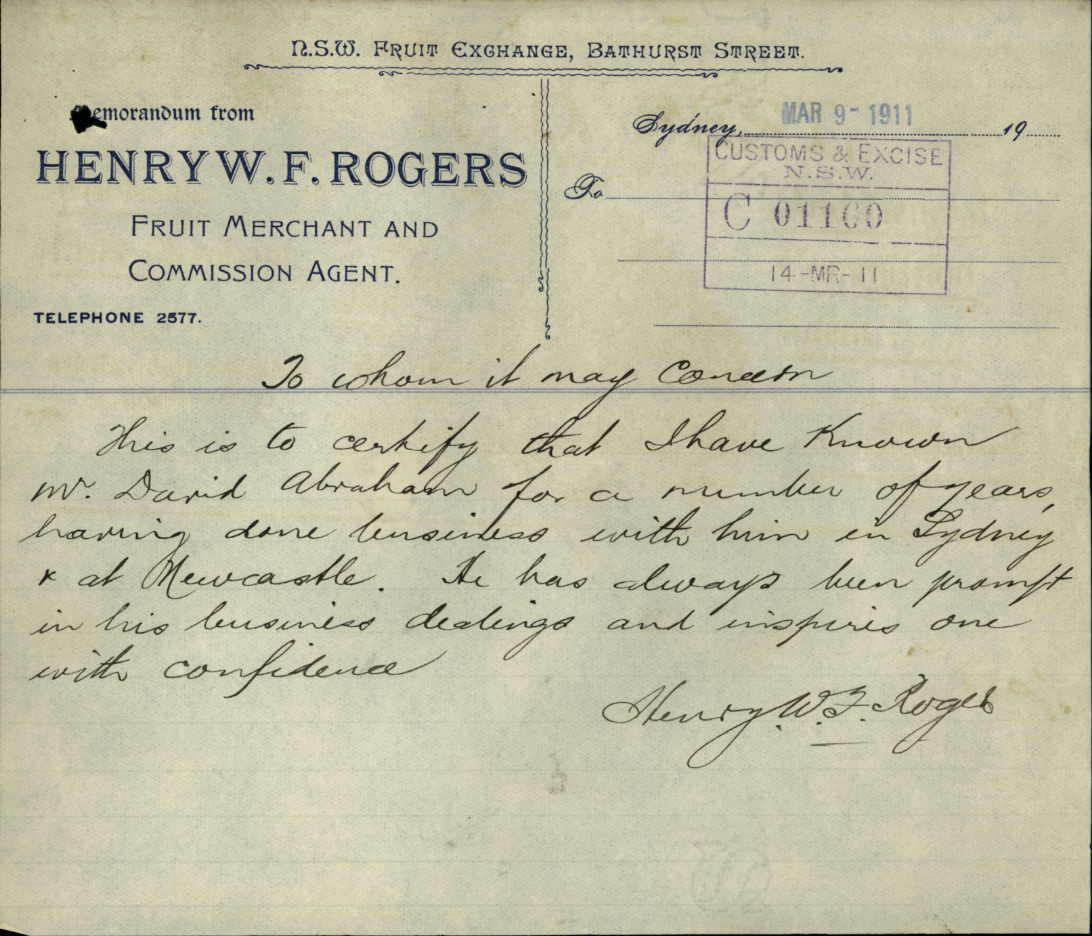 N.S.W. FRUIT EXCHANGE, BATHURST STREET.
Memorandum from
HENRY W. F. ROGERS
FRUIT MERCHANT AND
COMMISSION AGENT.
TELEPHONE 2577.
Sydney, MAR 9- 1911 19
To
CUSTOMS & EXCISE
N.S.W.
C 01160
14-MR-11
To whom it may Concern
This is to certify that I have Known
Mr. David Abraham for a number of years,
having done business with him in Sydney
& at Newcastle. He has always been prompt
in his business dealings and inspires one
with confidence
Henry W. F. Rogers